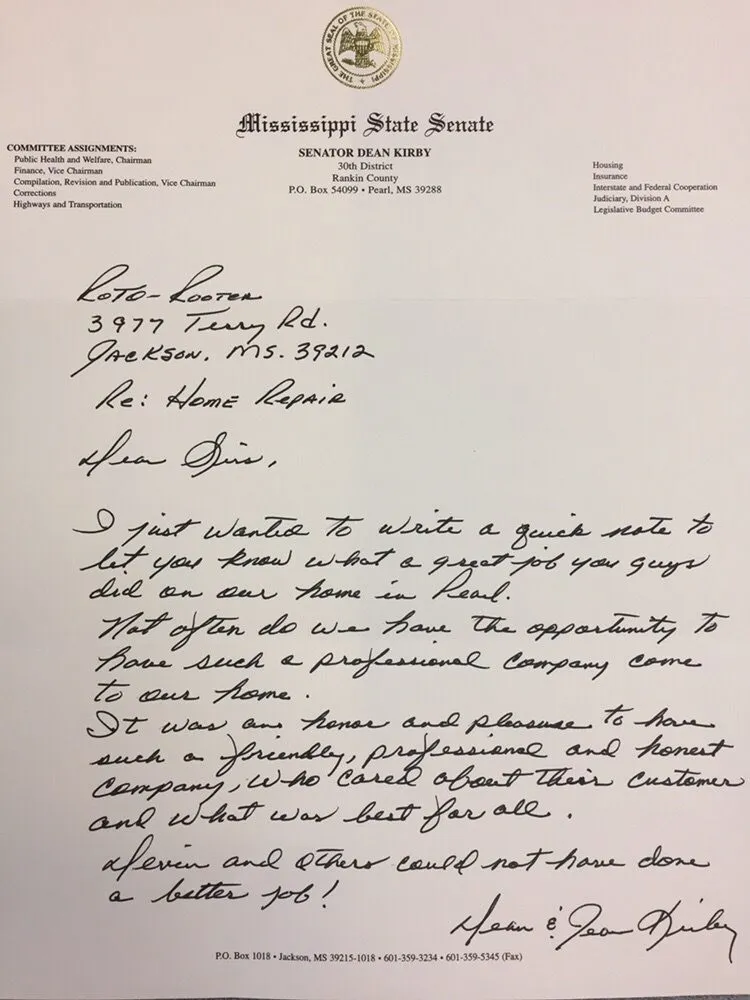 THE GREAT SEAL OF THE STATE OF MISSISSIPPI
Mississippi State Senate
SENATOR DEAN KIRBY
30th District
Rankin County
P.O. Box 54099 • Pearl, MS 39288
COMMITTEE ASSIGNMENTS:
Public Health and Welfare, Chairman
Finance, Vice Chairman
Compilation, Revision and Publication, Vice Chairman
Corrections
Highways and Transportation
Housing
Insurance
Interstate and Federal Cooperation
Judiciary, Division A
Legislative Budget Committee
Roto-Rooter
3977 Terry Rd.
Jackson, MS. 39212
Re: Home Repair
Dear Sirs,
I just wanted to write a quick note to
let you know what a great job you guys
did on our home in Pearl.
Not often do we have the opportunity to
have such a professional company come
to our home.
It was an honor and pleasure to have
such a friendly, professional and honest
company, who cared about their customer
and what was best for all.
Devin and others could not have done
a better job!
Dean & Jean Kirby
P.O. Box 1018 • Jackson, MS 39215-1018 • 601-359-3234 • 601-359-5345 (Fax)